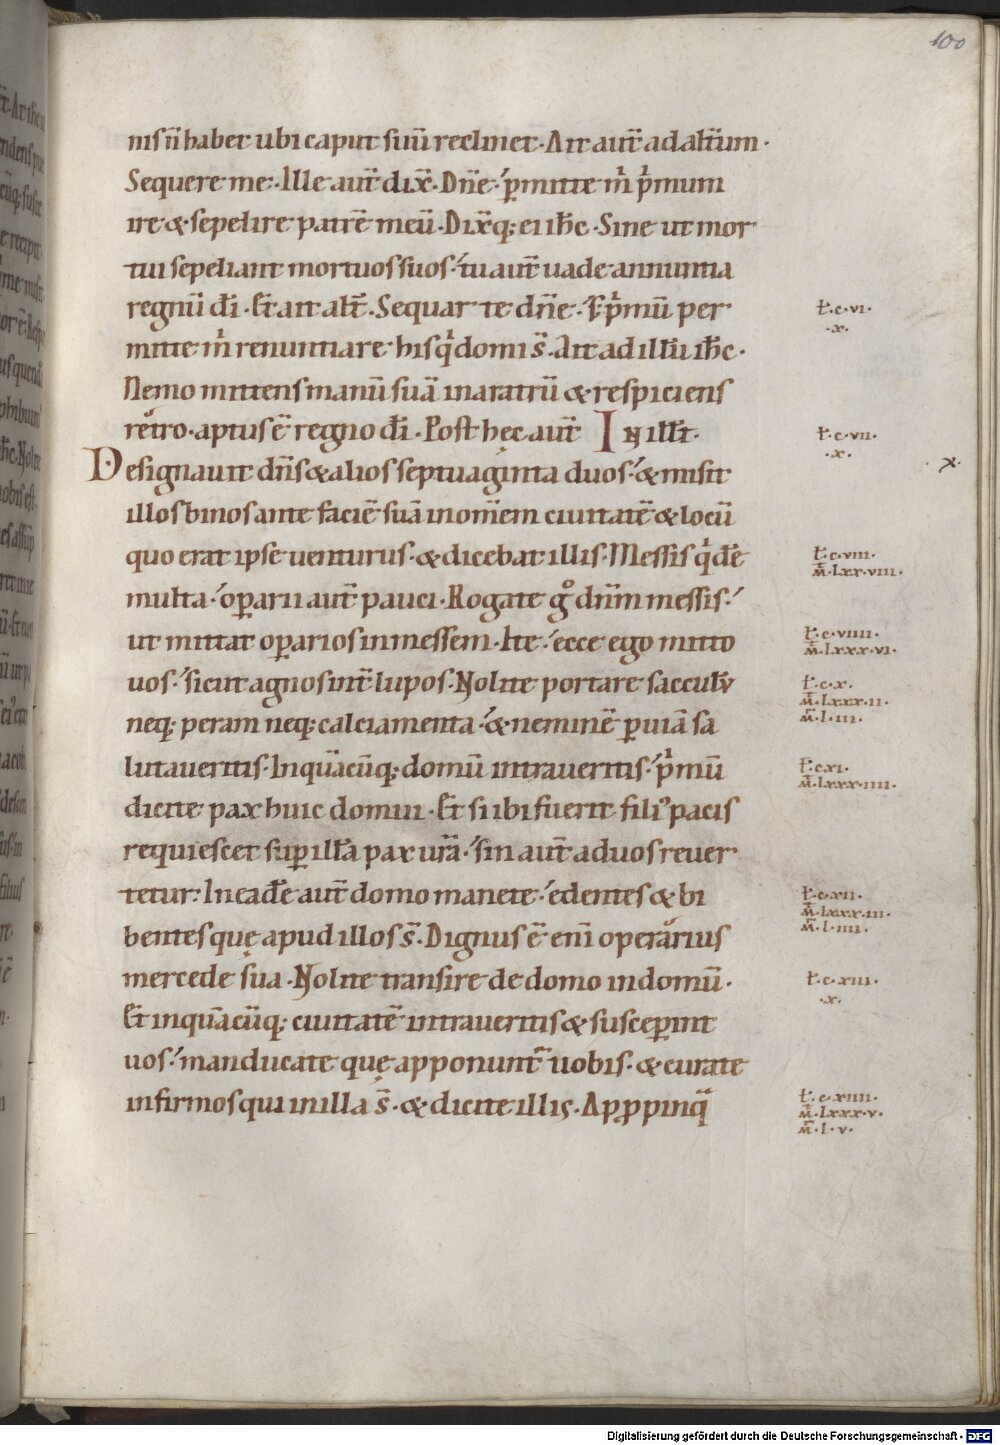 100
nis n̄ habet ubi caput suū reclinet · Ait aut̄ ad alt̄um ·
Sequere me · Ille aut̄ dix̄ · Dn̄e · ꝑmitte m̍ p̍mum
ire & sepelire patrē meū · Dix̄q; ei ih̄c · Sine ut mor
tui sepeliant mortuos suos · tu aut̄ uade annuntia
regnū dī · Et ait alt̄ · Sequar te dn̄e · S; p̍mū per
mitte m̍ renuntiare his q̍ domi s̄ · Ait ad illū ih̄c ·
Nemo mittens manū suā in aratrū & respiciens
retro · aptus ē regno dī · Post hęc aut̄ IN ill̄t ·
Designauit dn̄s & alios septuaginta duos · & misit
illos binos ante faciē suā in om̄em ciuitatē & locū
quo erat ipse uenturus · & dicebat illis · Messis q̍dē
multa · oꝑarii aut̄ pauci · Rogate g̊ dn̄m messis ·
ut mittat oꝑarios in messem · Ite · ecce ego mitto
uos · sicut agnos int̄ lupos · Nolite portare sacculv̄
neq; peram neq; calciamenta · & neminē ꝑ uiā sa
lutaueritis · In quācūq; domū intraueritis · p̍mū
dicite pax huic domui · Et si ibi fuerit fili᾽ pacis
requiescet suꝑ illā pax ur̄a · sin aut̄ ad uos reuer
tetur · In eadē aut̄ domo manete · edentes & bi
bentes quę apud illos s̄ · Dignus ē eni operarius
mercede sua · Nolite transire de domo in domū ·
Et in quācūq; ciuitatē intraueritis & susceꝑint
uos · manducate quę apponunt̄ uobis · & curate
infirmos qui in illa s̄ · & dicite illis · Apꝓpinq̄
ł · c · vi ·
· x ·
ł · c · vii ·
· x ·
· x ·
ł · c · viii ·
m̄ · lxx · viii ·
ł · c · viiii ·
m̄ · lxxx · vi ·
ł · c · x ·
m̄ · lxxx · ii ·
m̄ · l · iii ·
ł · c xi ·
m̄ · lxxx · iiii ·
ł · c · xii ·
m̄ · lxxx · iii ·
m̄ · l · iiii ·
ł · c · xiii ·
· x ·
ł · c · xiiii ·
m̄ · lxxx · v ·
m̄ · l · v ·
Digitalisierung gefördert durch die Deutsche Forschungsgemeinschaft - DFG